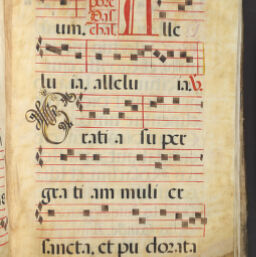 um. Alle
lu ia, allelu ia. V.
Grati a super
gra ti am muli er
sancta, et pu dorata